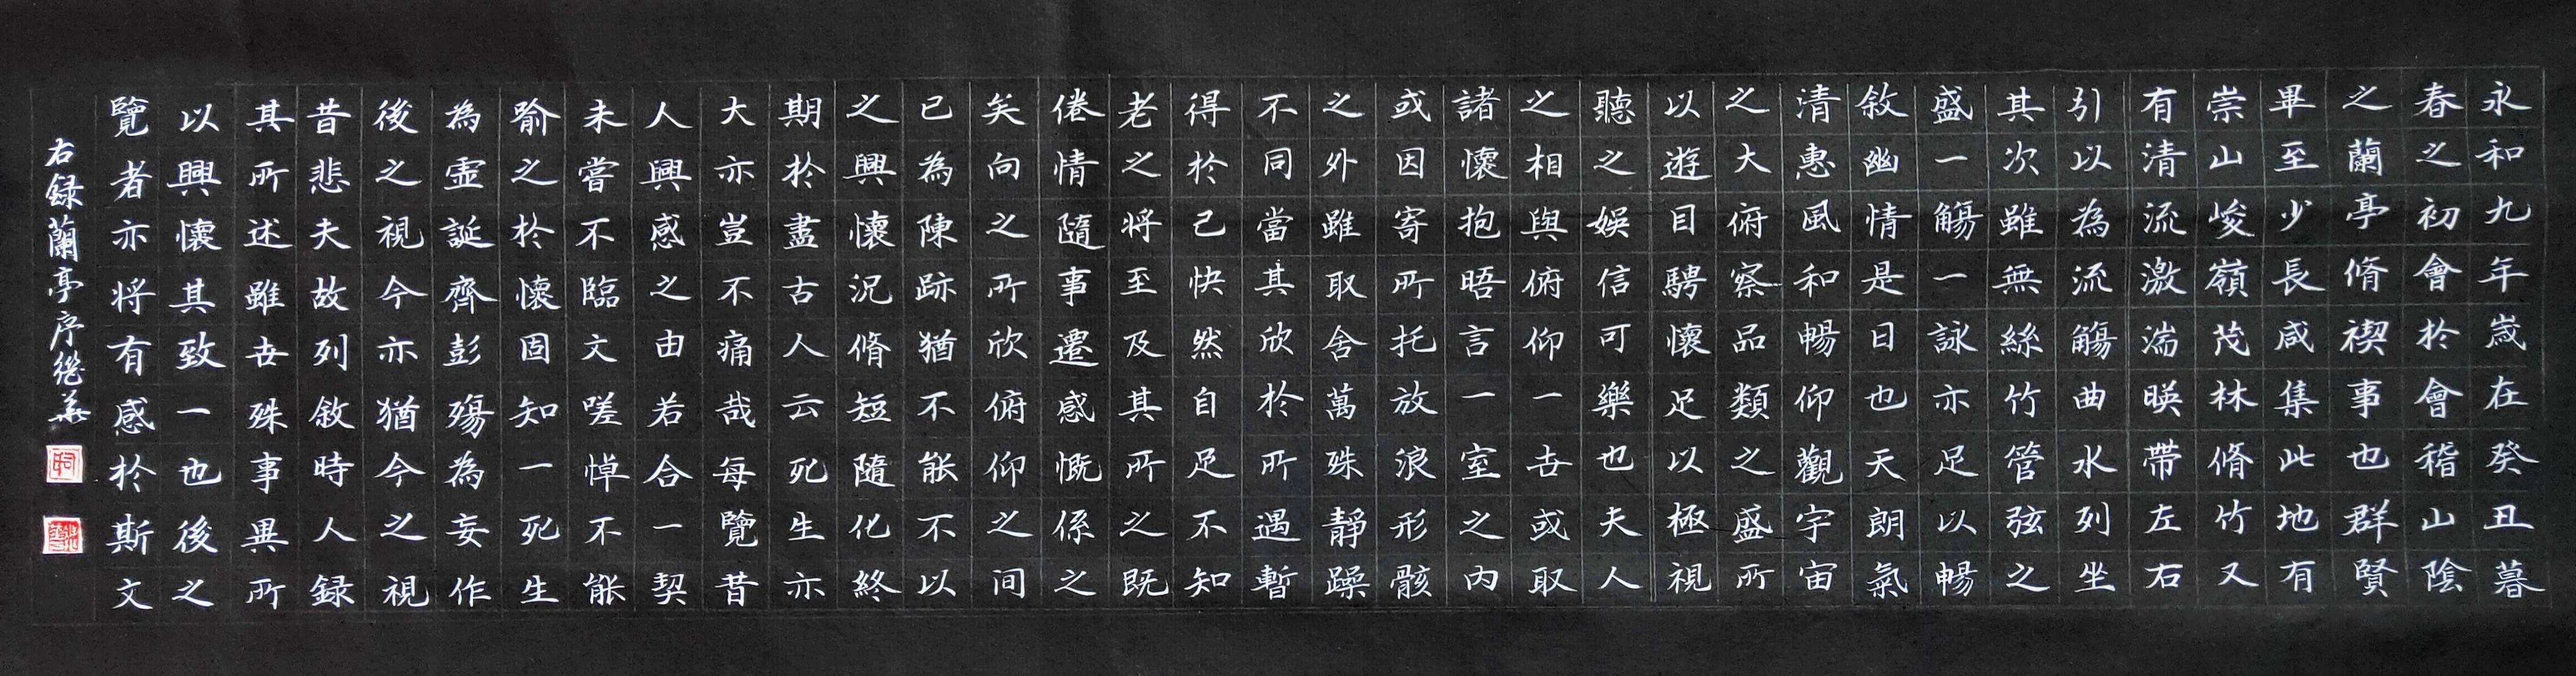 永和九年歲在癸丑暮
春之初會於會稽山陰
之蘭亭脩禊事也群賢
畢至少長咸集此地有
崇山峻嶺茂林脩竹又
有清流激湍暎帶左右
引以為流觴曲水列坐
其次雖無絲竹管弦之
盛一觴一詠亦足以暢
敘幽情是日也天朗氣
清惠風和暢仰觀宇宙
之大俯察品類之盛所
以遊目騁懷足以極視
聽之娛信可樂也夫人
之相與俯仰一世或取
諸懷抱晤言一室之内
或因寄所托放浪形骸
之外雖取舍萬殊靜躁
不同當其欣於所遇暫
得於己快然自足不知
老之將至及其所之既
倦情隨事遷感慨係之
矣向之所欣俯仰之间
已為陳跡猶不能不以
之興懷況脩短隨化終
期於盡古人云死生亦
大亦豈不痛哉每覽昔
人興感之由若合一契
未嘗不臨文嗟悼不能
喻之於懷固知一死生
為虛誕齊彭殤為妄作
後之視今亦猶今之視
昔悲夫故列敘時人録
其所述雖世殊事異所
以興懷其致一也後之
覽者亦將有感於斯文
右録蘭亭序